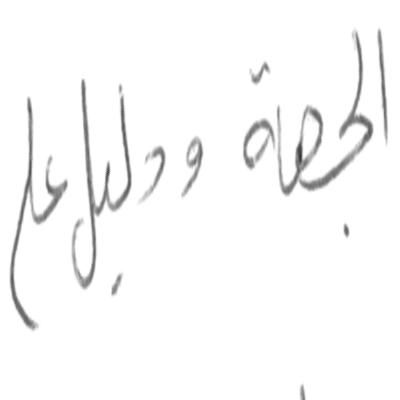 الجهة ودليل علم